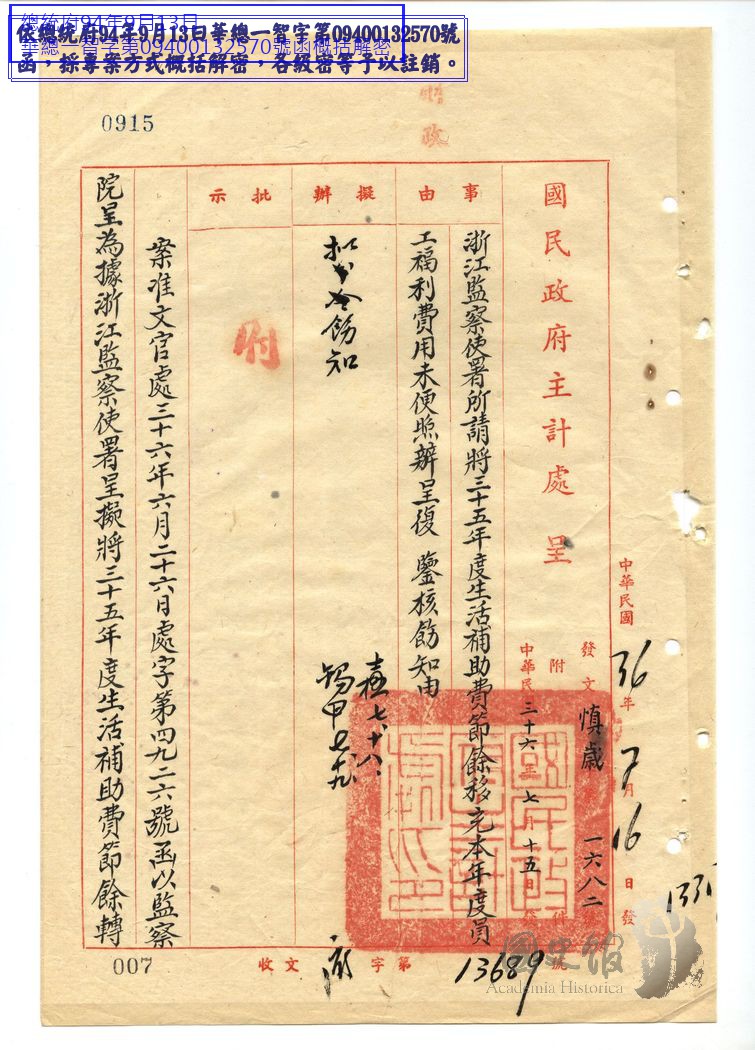 總統府94年9月13日
華總一智字第09400132570號函概括解密
依總統府94年9月13日華總一智字第09400132570號
函，採專案方式概括解密，各級密等予以註銷。
0915
國民政府主計處 呈
中華民國36年7月16日發
發文慎歲 一六八二號
附件
中華民國三十六年七月十五日發
事由
浙江監察使署所請將三十五年度生活補助費節餘移充本年度員
工福利費用未便照辦呈復 鑒核飭知由
擬辦
飭知
七、十八、
批示
案准文官處三十六年六月二十六日處字第四九二六號函以監察
院呈為據浙江監察使署呈擬將三十五年度生活補助費節餘轉
收文 字第 13689 號
007
國史館
Academia Historica